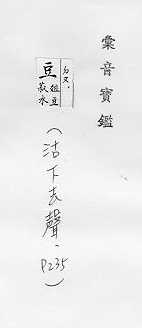 彙音寶鑑
ㄉㄡˋ
豆
俎豆
菽水
(沽下去聲、P235)